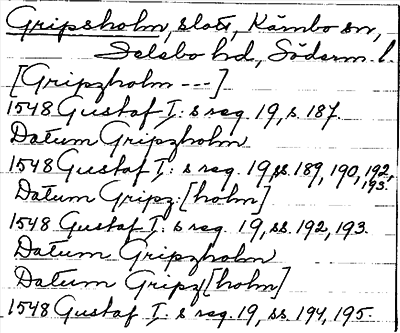 Gripsholm, slott, Kärnbo sn,
Selebo hd, Söderm. l.
[Gripzholm ---]
1548 Gustaf I: s reg. 19, s. 187.
Datum Gripzholm
1548 Gustaf I: s reg. 19, ss. 189, 190, 192, 193.
Datum Gripz [holm]
1548 Gustaf I: s reg. 19, ss. 192, 193.
Datum Gripzholm
Datum Gripz [holm]
1548 Gustaf I: s reg. 19, ss. 194, 195.